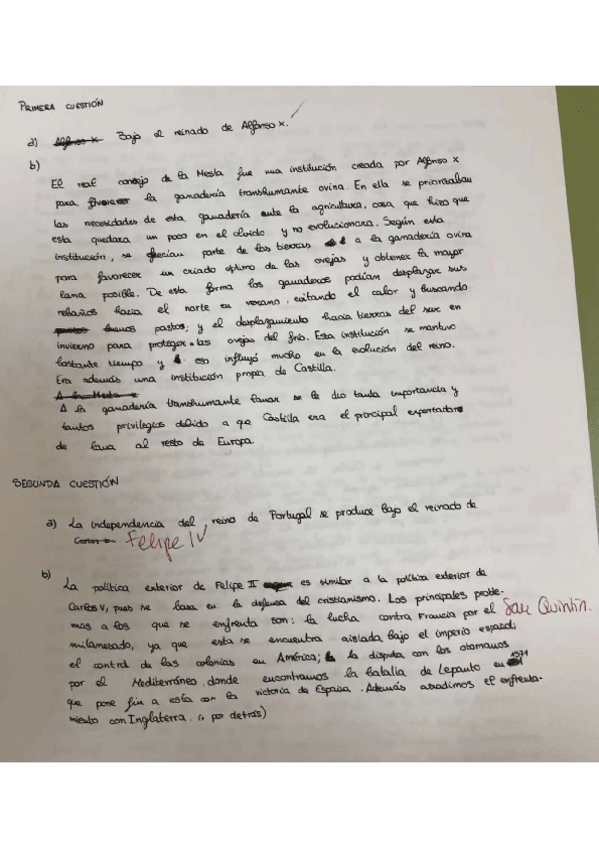 PRIMERA CUESTIÓN
a) Alfonso X Bajo el reinado de Alfonso X.
b)
El real consejo de la Mesta fue una institución creada por Alfonso X
para favorecer la ganadería transhumante ovina. En ella se priorizaban
las necesidades de esta ganadería ante la agricultura, cosa que hizo que
esta quedara un poco en el olvido y no evolucionara. Según esta
institución, se ofrecían parte de las tierras a la ganadería ovina
para favorecer un criado optimo de las ovejas y obtener la mayor
lana posible. De esta forma los ganaderos podían desplazar sus
rebaños hacia el norte en verano, evitando el calor y buscando
buenos pastos; y el desplazamiento hacia tierras del sur en
invierno para proteger a las ovejas del frío. Esta institución se mantuvo
bastante tiempo y eso influyó mucho en la evolución del reino.
Era además una institución propia de Castilla.
A la Mesta
A la ganadería transhumante lanar se le dio tanta importancia y
tantos privilegios debido a que Castilla era el principal exportador
de lana al resto de Europa.
SEGUNDA CUESTIÓN
a) La independencia del reino de Portugal se produce bajo el reinado de
Carlos Felipe IV
b) La política exterior de Felipe II es similar a la política exterior de
Carlos V, pues se basa en la defensa del cristianismo. Los principales proble-
mas a los que se enfrenta son: la lucha contra Francia por el San Quintín.
milanesado, ya que esta se encuentra aislada bajo el imperio español;
el control de las colonias en América; la disputa con los otomanos
por el Mediterráneo, donde encontramos la batalla de Lepanto en 1571
que pone fin a esta con la victoria de España. Además añadimos el enfrenta-
miento con Inglaterra. (→ por detrás)